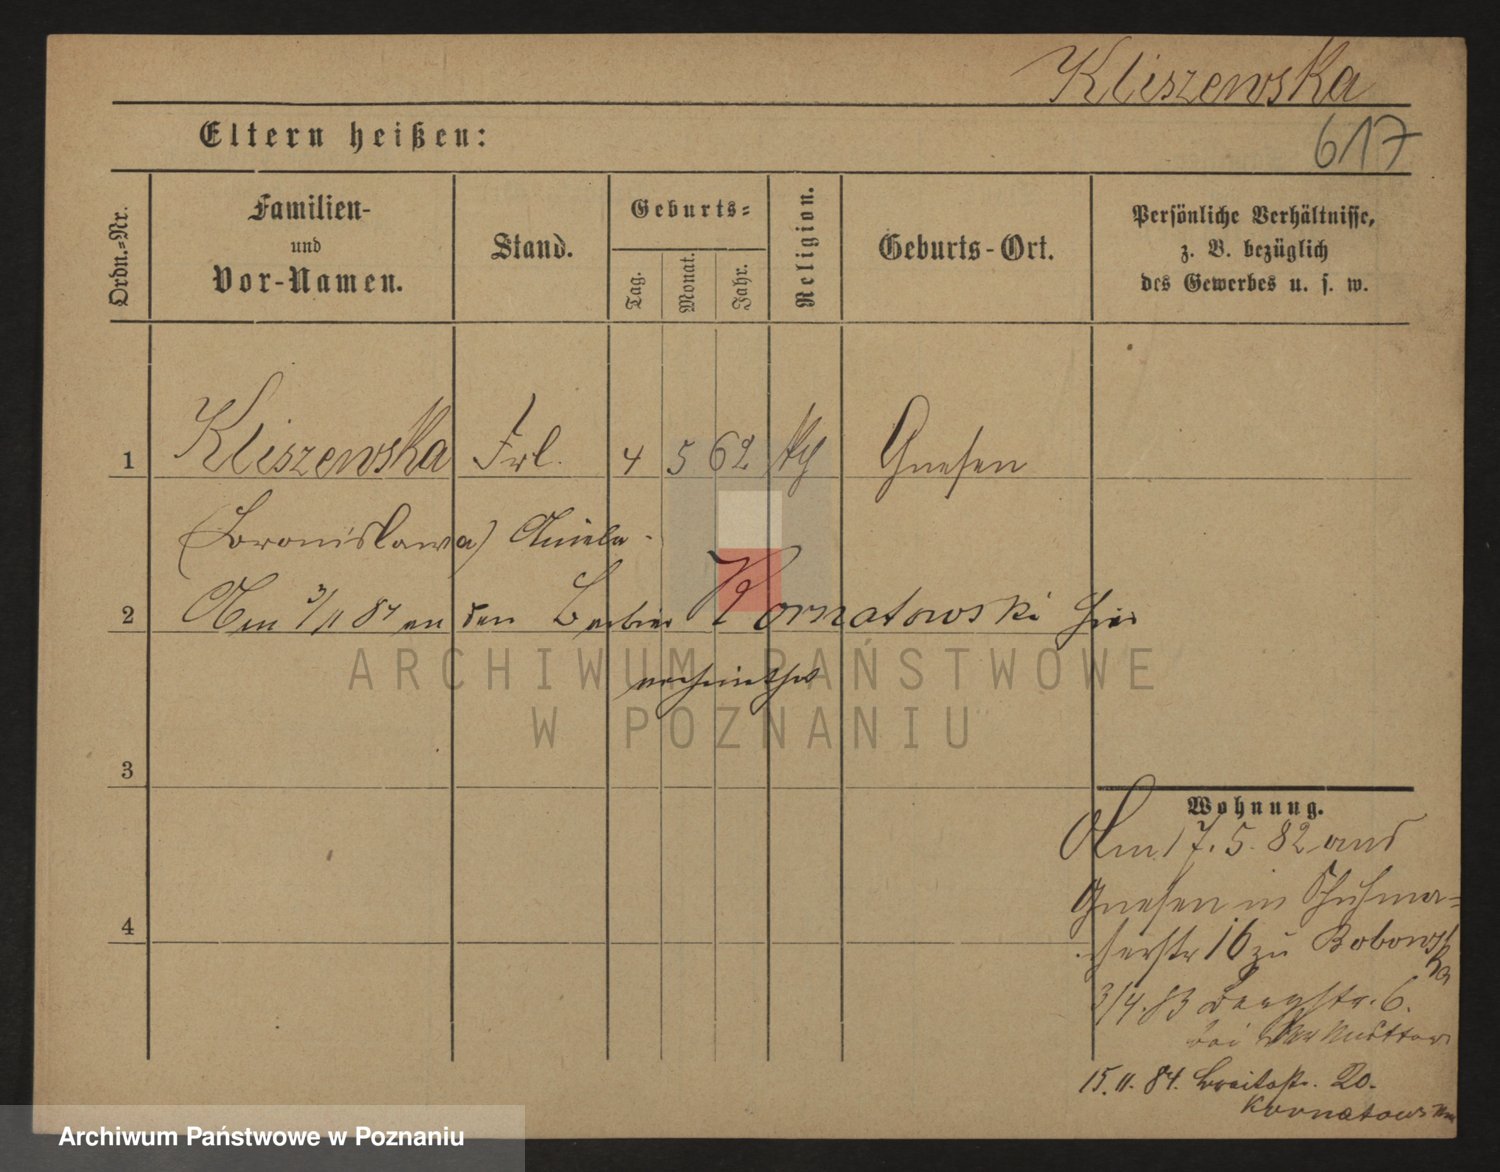 Kliszewska
617
Eltern heißen:
Ordn.=Nr.
Familien-
und
Vor-Namen.
Stand.
Geburts=
Tag.
Monat.
Jahr.
Religion.
Geburts-Ort.
Persönliche Verhältnisse,
z. B. bezüglich
des Gewerbes u. s. w.
1 Kliszewska Frl. 4 5 62 Gnesen
(Bronislawa) Aniela
2 Am 3/11 84 an den Barbier Kornatowski hier
verheirathet
ARCHIWUM PAŃSTWOWE
W POZNANIU
3
Wohnung.
Am 17. 5. 82 aus
Gnesen in Schuhma=
cherstr 16 zu Bobowska
4
3/4. 83 Bergstr. 6.
bei der Mutter
15. 11. 84. Breitestr. 20.
Kornatowski
Archiwum Państwowe w Poznaniu